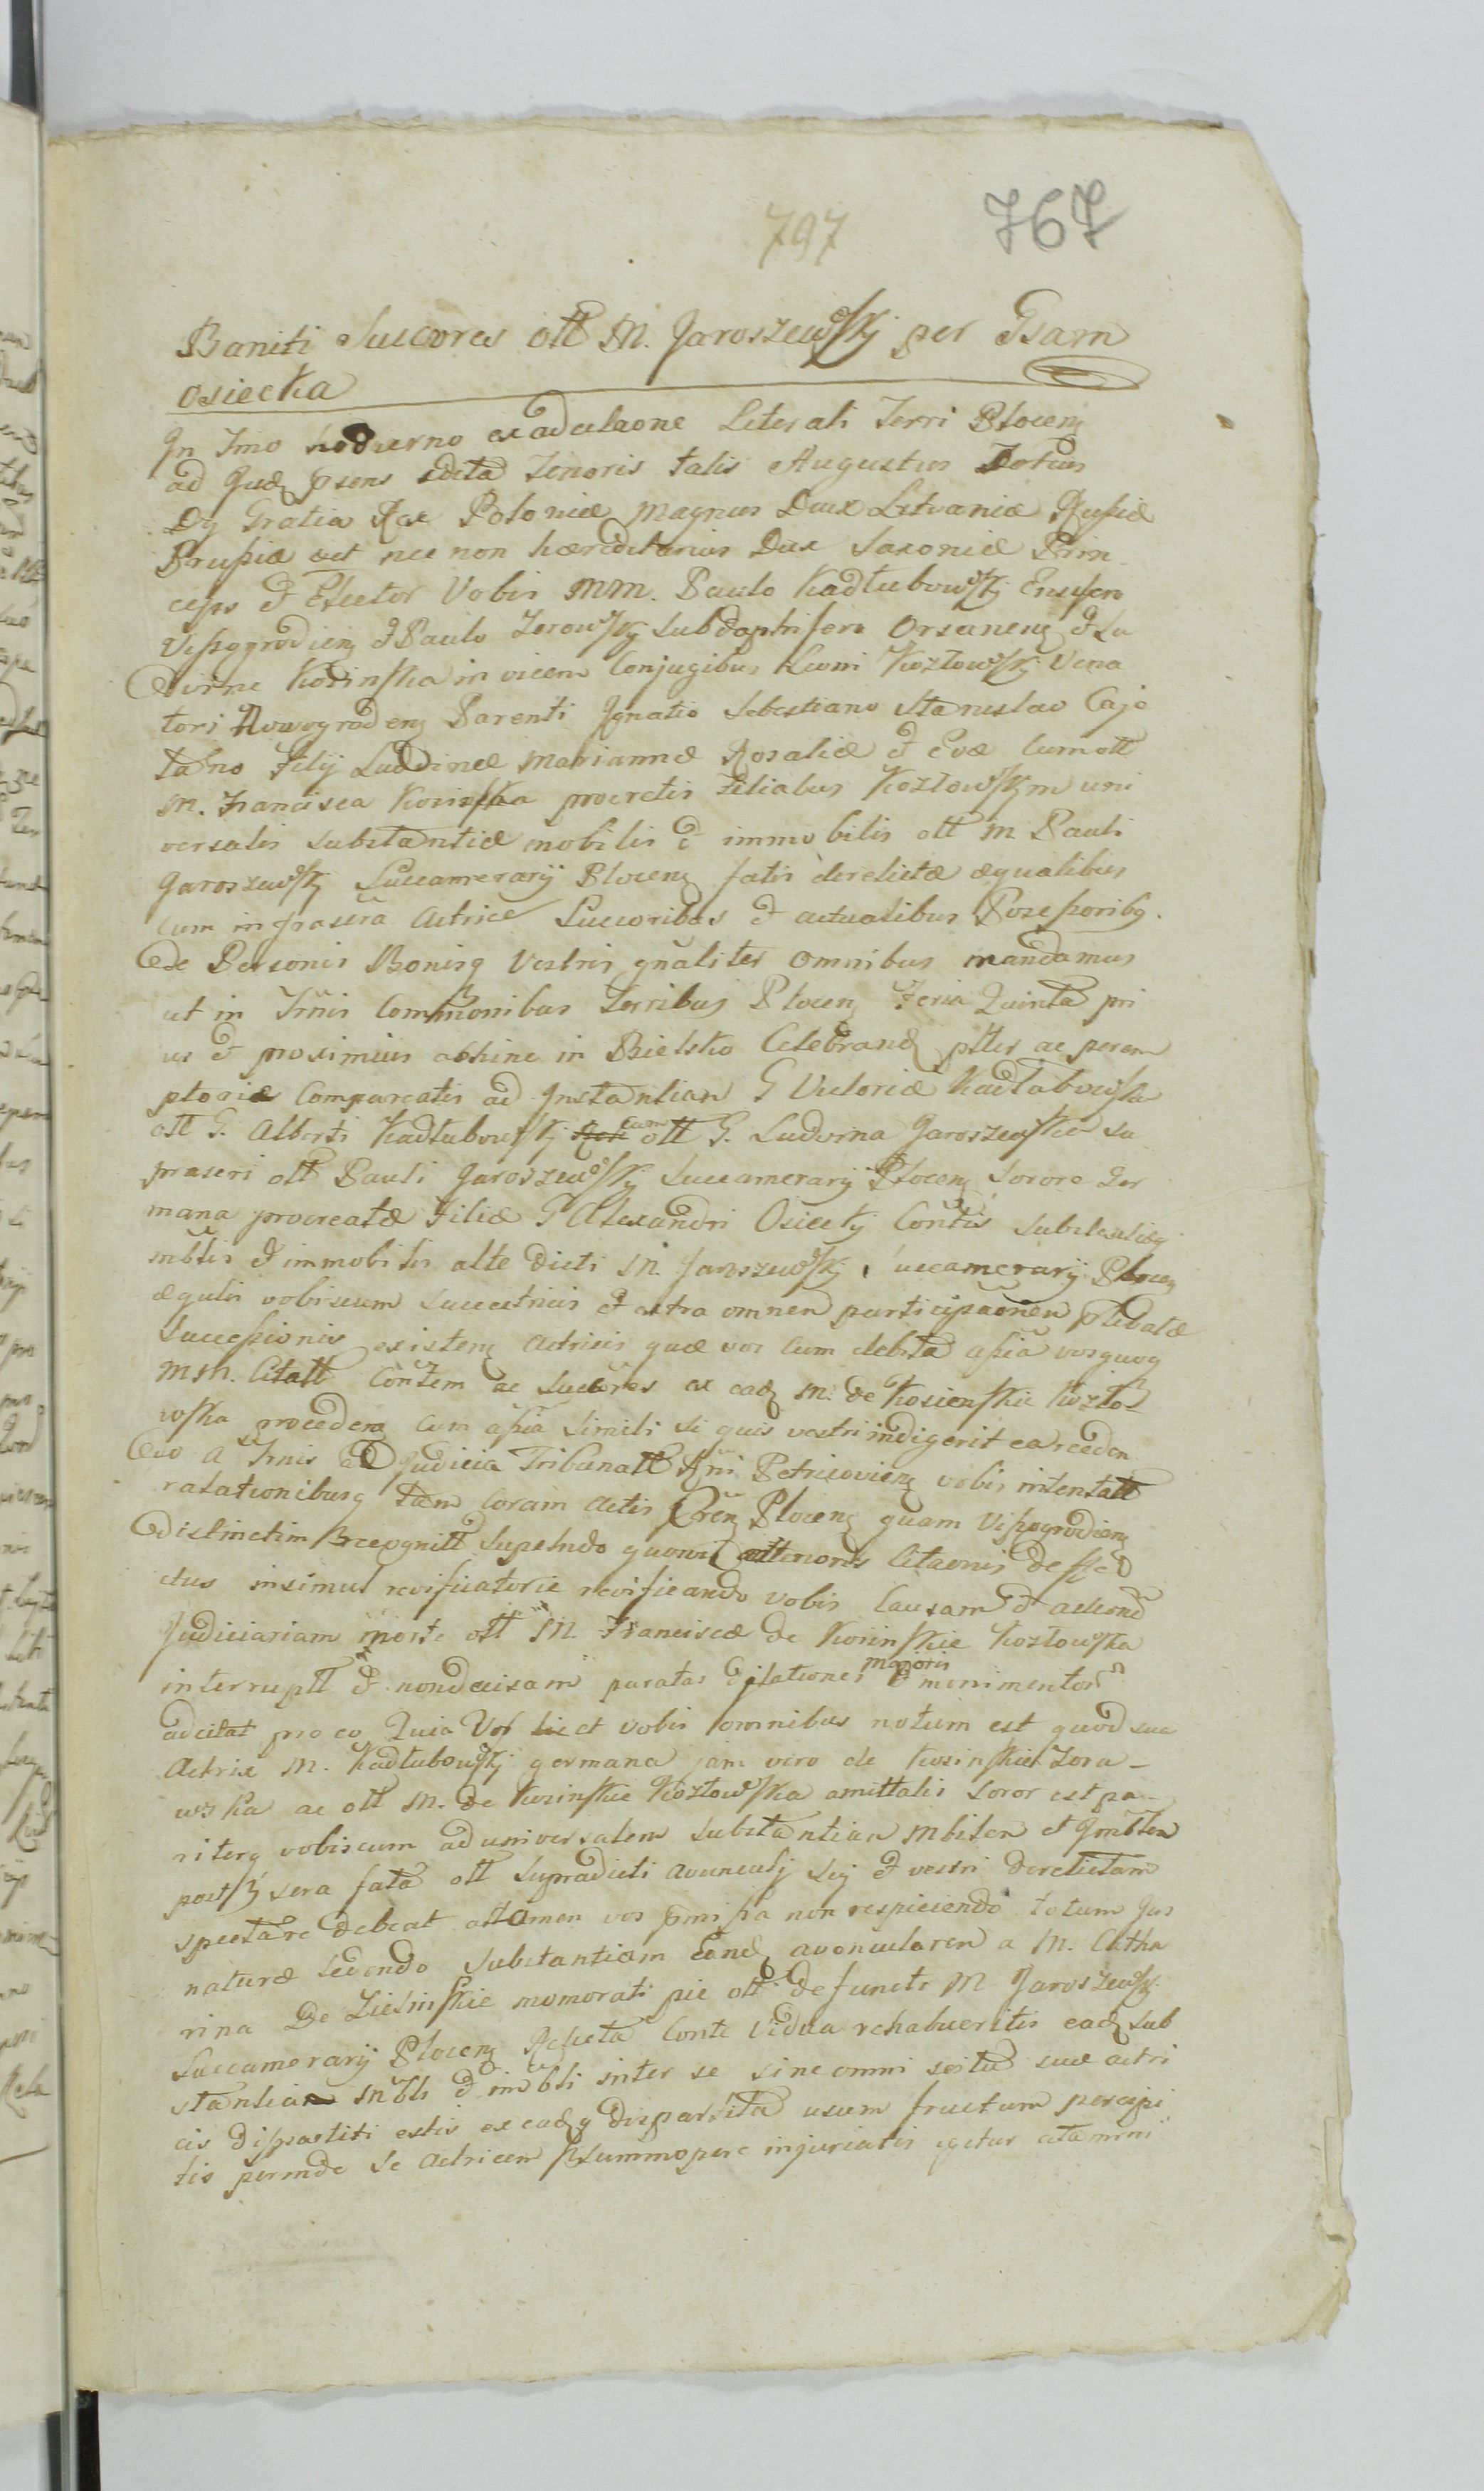 797 767
Baniti Succores olt M. Jaroszewskj per Gsam
Osiecka
In Tmo hodierno ex adcitaone Literali Terri Plocenȝ
ad Jud psens edita Tenoris talis Augustus Tertius
Dj Gratia Rex Poloniæ Magnus Dux Lituaniæ Rußiæ
Prußiæ ect nec non hæreditarius Dux Saxoniæ Prin
ceps et Elector Vobis MM. Paulo Kadłubowskj Ensifero
Vißogrodienȝ et Paulo Zorowskj Subdaphifero Orsanenȝ et Lu
dvine Kosinska in vicem Conjugibus Leoni Kozłowskj Vena
tori Nowogrodenȝ Parenti Ignatio Sebestiano Stanislao Caje
tano Filij Ludvinæ Mariannæ Rosaliæ et Evæ cum olt
M. Francisca Kosinska procretis Filiabus Kozłowskjm uni
versalis substantiæ mobilis et immobilis olt M Pauli
Jaroszewskj Succamerarij Plocenȝ fatis derelictæ æqualibus
cum infrascra Actrice Succoribus et actualibus Poseßoribq.
de Personis Bonisq Vestris gnaliter omnibus mandamus
ut in Trnis Commonibus Terribus Plocenȝ Feria Quinta pri
us et proximius abhinc in Bielsko Celebrand ptter ac perem
ptorie Compareatis ad Instantian G Victoriæ Kadłubowska
olt G. Alberti Kadłubowskj cum olt G. Ludvina Jaroszewska su
prascri olt Pauli Jaroszewskj Succamerarij Plocenȝ Sorore Ger
mana procreatæ Filiæ G Alexandri Osieckj Contis substantiæq
mbtis et immobilis alte dicti M. Jaroszewskj Succamerarij Plocenȝ
æqulis vobiscum succetricis et extra omnen participaonen ptibatæ
Succeßionis existenȝ Actricis quæ vos cum debita aßia vosquoq
MM. Citatt Contem ac Succores ex ead M. de Kosienskie Kozło
wska procedenȝ cum aßia simili si quis vestri indigerit ea recedon
do a Trnis ad Judicia Tribunatt Rni Petricovienȝ vobis intentatt
ralationibusq tam coram Actis Plocenȝ quam Vißogrodienȝ
distinctim recognitt supetndo quovis attenoris Citaonis deffe
ctus insimul reificatorie reificando vobis Causam et actiond
Judiciariam morte olt M. Franciscæ de Kosinskie Kozłowska
interruptt et nondecisam paratas Dilationes majoris et monimentor
adcitat pro eo Quia Vos licet vobis omnibus notum est quod sua
Actrix M. Kadłubowskj germana jam vero de Kosinskie Zora-
wska ac olt M. de Kosinskie Kozłowska amittalis soror est pa-
riterq vobiscum ad universalem substantian Mbilen et Jmbten
post sera fata olt supradicti avunculj suj et vestri derelictam
spectare debeat attamen vos pmißa non respiciendo totum Jus
naturæ ledendo substantiam Eand avoncularen a M. Catha
rina De Zielinskie momorati pie olt defuncti M Jaroszewsk
Succamerarij Plocenȝ Relicta Conte Vidua rehabueritis ead sub
stantian mbli et imbli inter se sine omni scitu suæ actri
cis dißpartiti estis ex eadq dispartita usum fructum percipi
tis perinde se Actricem summopere injuriatis igitur citamini